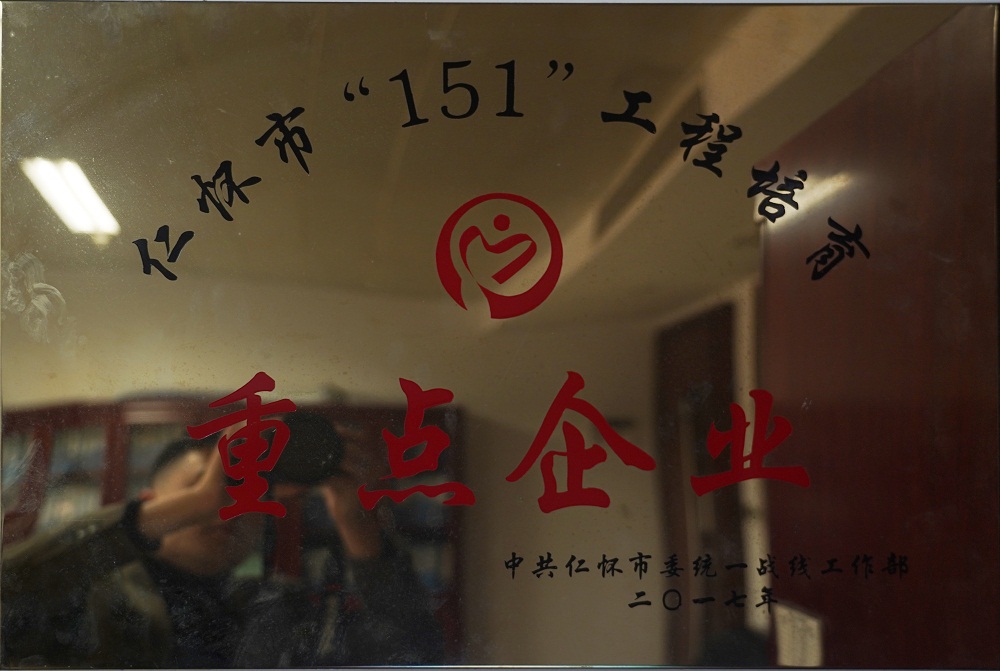 仁怀市“151”工程培育
重点企业
中共仁怀市委统一战线工作部
二〇一七年